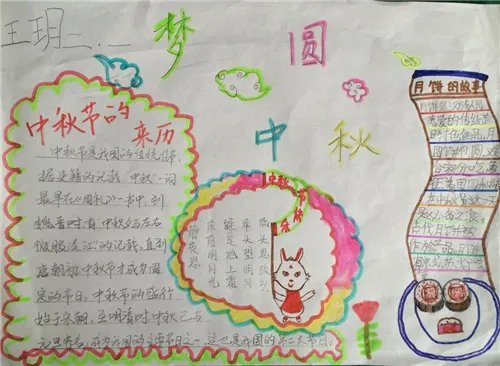 王玥二.
梦圆
中秋
中秋节的
来历
中秋节是我国的传统佳节,
据史籍的记载,"中秋"一词
最早在《周礼》一书中,到
魏晋时,有"中秋夕与左右
微服泛江"的记载,直到
唐朝初,中秋节才成为固
定的节日,中秋节的盛行
始于宋朝,至明清时,中秋已与
元旦齐名,成为我国的主要节日之一,这也是我国的第二大节日。
中秋
静夜思
床前明月光
疑是地上霜
举头望明月
低头思故乡
月饼的故事
月饼是汉族人
喜爱的传统节
日特色食品,月
圆饼
合家分
必备之食。
古代月饼被
作为祭品于